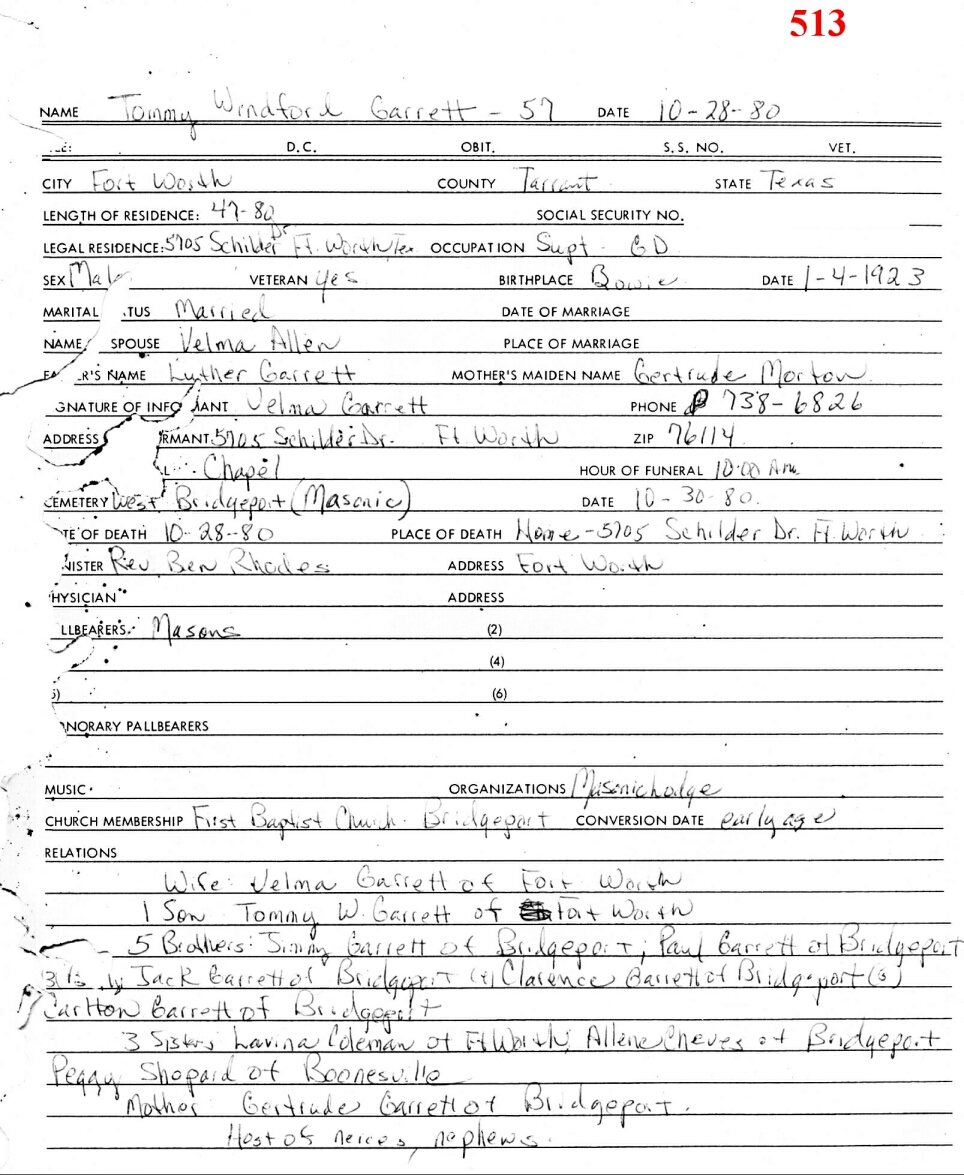 513
NAME Tommy Windford Garrett - 57 DATE 10-28-80
D.C. OBIT. S.S. NO. VET.
CITY Fort Worth COUNTY Tarrant STATE Texas
LENGTH OF RESIDENCE: 47-80 SOCIAL SECURITY NO.
LEGAL RESIDENCE: 5705 Schilder Dr Ft. Worth Tex OCCUPATION Supt - GD
SEX Male VETERAN yes BIRTHPLACE Bowie DATE 1-4-1923
MARITAL TUS Married DATE OF MARRIAGE
NAME SPOUSE Velma Allen PLACE OF MARRIAGE
FA R'S NAME Luther Garrett MOTHER'S MAIDEN NAME Gertrude Morton
GNATURE OF INFO ANT Velma Garrett PHONE 738-6826
ADDRESS RMANT 5705 Schilder Dr. Ft. Worth ZIP 76114
Chapel HOUR OF FUNERAL 10:00 Am
CEMETERY West Bridgeport (Masonic) DATE 10-30-80.
TE OF DEATH 10-28-80 PLACE OF DEATH Home - 5705 Schilder Dr. Ft. Worth
NISTER Rev. Ben Rhodes ADDRESS Fort Worth
HYSICIAN ADDRESS
LLBEARERS. Masons (2)
(4)
) (6)
NORARY PALLBEARERS
MUSIC ORGANIZATIONS Masonic Lodge
CHURCH MEMBERSHIP First Baptist Church - Bridgeport CONVERSION DATE early age
RELATIONS
Wife: Velma Garrett of Fort Worth
1 Son Tommy W. Garrett of Fort Worth
5 Brothers: Jimmy Garrett of Bridgeport; Paul Garrett of Bridgeport
Jack Garrett of Bridgeport (4) Clarence Garrett of Bridgeport (5)
Carlton Garrett of Bridgeport
3 Sisters Lavina Coleman of Ft Worth; Allene Cheves of Bridgeport
Peggy Shopard of Boonesville
Mother Gertrude Garrett of Bridgeport.
Host of neices, nephews.